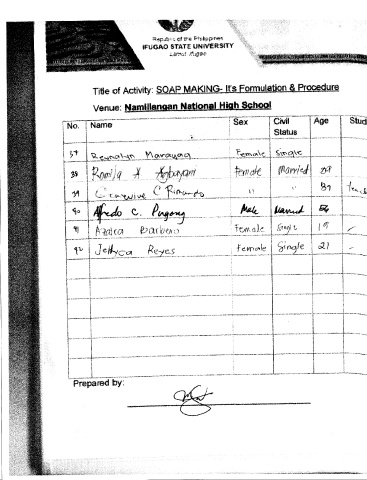 Republic of the Philippines
IFUGAO STATE UNIVERSITY
Lamut, Ifugao
Title of Activity: SOAP MAKING- It's Formulation & Procedure
Venue: Namillangan National High School
No. Name Sex Civil Status Age Stud
37 Female Single
38 Romila A Agbayani Female Married 29
39 C " "
40 Alfredo C. Pugong Male Married
41 Azaira Barbero Female Single 19
42 Jellyca Reyes Female Single 21
Prepared by: